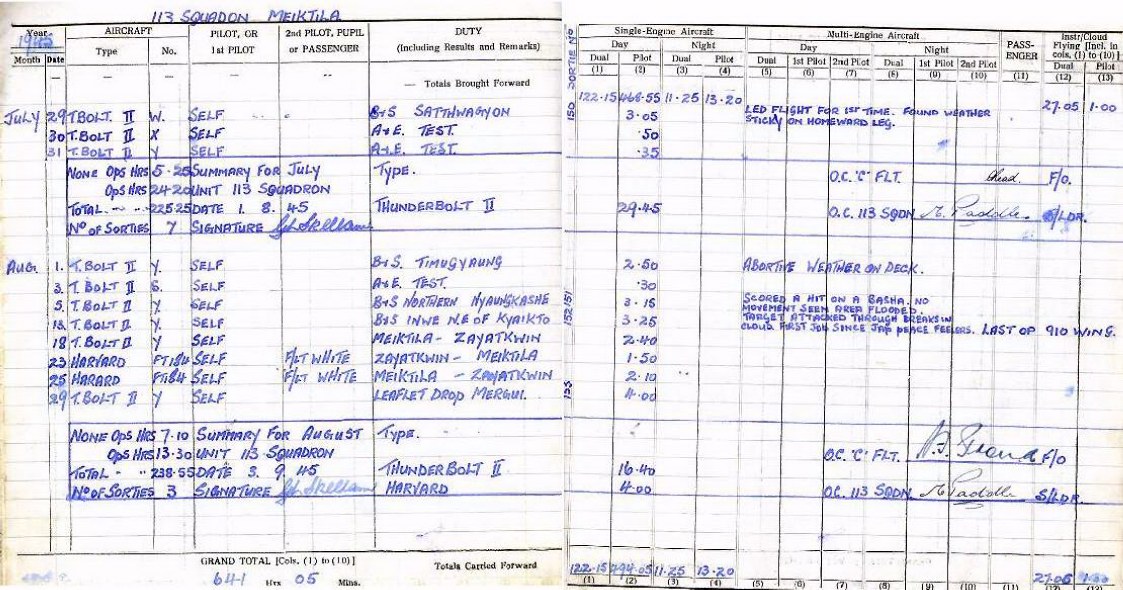 113 SQUADON MEIKTILA
Year 1945 AIRCRAFT PILOT, OR 1st PILOT 2nd PILOT, PUPIL or PASSENGER DUTY (Including Results and Remarks) Single-Engine Aircraft Multi-Engine Aircraft PASS-ENGER Instr/Cloud Flying [Incl. in cols. (1) to (10)]
Month Date Type No. Day Night Day Night
Dual Pilot Dual Pilot Dual 1st Pilot 2nd Pilot Dual 1st Pilot 2nd Pilot Dual Pilot
(1) (2) (3) (4) (5) (6) (7) (8) (9) (10) (11) (12) (13)
SORTIE NO
— — — — — — Totals Brought Forward
122.15 468.55 11.25 13.20 27.05 1.00
JULY 29 T.BOLT II W. SELF B+S SATTHWAGYON 150 3.05 LED FLIGHT FOR 1ST TIME. FOUND WEATHER
STICKY ON HOMEWARD LEG.
30 T.BOLT II X SELF A+E. TEST. .50
31 T.BOLT II Y SELF A+E. TEST. .35
NONE OPS HRS 5.25 SUMMARY FOR JULY TYPE. O.C. 'C' FLT. F/O.
OPS HRS 24.20 UNIT 113 SQUADRON
TOTAL - - .. 225.25 DATE 1. 8. 45 THUNDERBOLT II 29.45 O.C. 113 SQDN S/LDR.
NO OF SORTIES 7 SIGNATURE
AUG. 1. T.BOLT II Y. SELF B+S. TIMUGYAUNG 2.50 ABORTIVE WEATHER ON DECK.
3. T.BOLT II S. SELF A+E. TEST. .30
5. T.BOLT II Y. SELF B+S NORTHERN NYAUNGKASHE 152 151 3.15 SCORED A HIT ON A BASHA. NO
MOVEMENT SEEN AREA FLOODED.
13. T.BOLT II Y. SELF B+S INWE N.E OF KYAIKTO 3.25 TARGET ATTACKED THROUGH BREAKS IN
CLOUD FIRST JOB SINCE JAP PEACE FEELERS. LAST OP 910 WING.
18 T.BOLT II Y SELF MEIKTILA - ZAYATKWIN 2.40
23 HARVARD FT184 SELF F/LT WHITE ZAYATKWIN - MEIKTILA 1.50
25 HARARD FT184 SELF F/LT WHITE MEIKTILA - ZAYATKWIN 2.10
29 T.BOLT II Y SELF LEAFLET DROP MERGUI. 153 4.00
NONE OPS HRS 7.10 SUMMARY FOR AUGUST TYPE. O.C. 'C' FLT. F/O
OPS HRS 13.30 UNIT 113 SQUADRON
TOTAL - .. 238.55 DATE 3. 9. 45 THUNDERBOLT II 16.40
NO OF SORTIES 3 SIGNATURE HARVARD 4.00 O.C. 113 SQDN S/LDR.
GRAND TOTAL [Cols. (1) to (10)] Totals Carried Forward
641 Hrs 05 Mins. 122.15 494.05 11.25 13.20 27.05 1.00
(1) (2) (3) (4) (5) (6) (7) (8) (9) (10) (11) (12) (13)